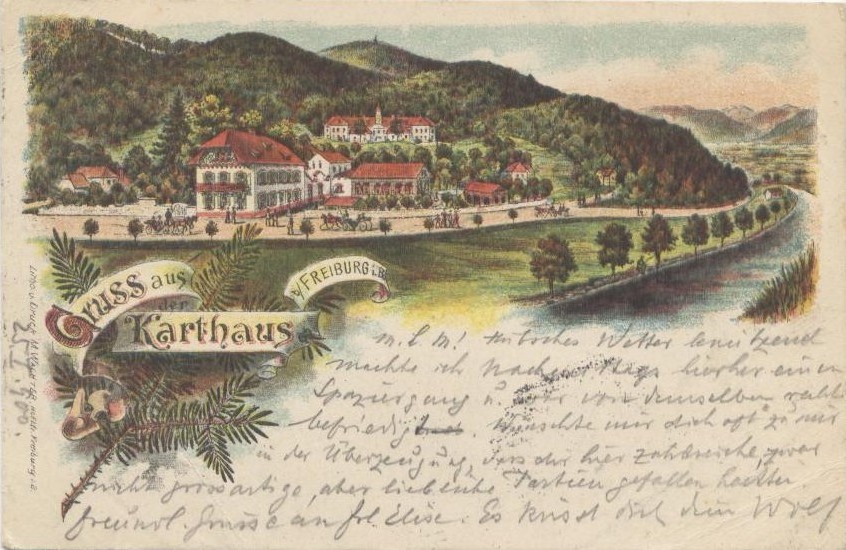 Gruss aus
der
Karthaus
b/FREIBURG i.B.
25. I. 900.
m. l. M! Hübsches Wetter benützend
machte ich Nachmittags hierher einen
Spaziergang u. war von demselben recht
befriedigt. Wünschte mir dich oft zu mir
in der Überzeugung, dass dir hier zahlreiche, zwar
nicht grossartige, aber liebliche Partien gefallen hätten.
freundl. Grüsse an Frl Elise. Es küsst dich dein Wolf